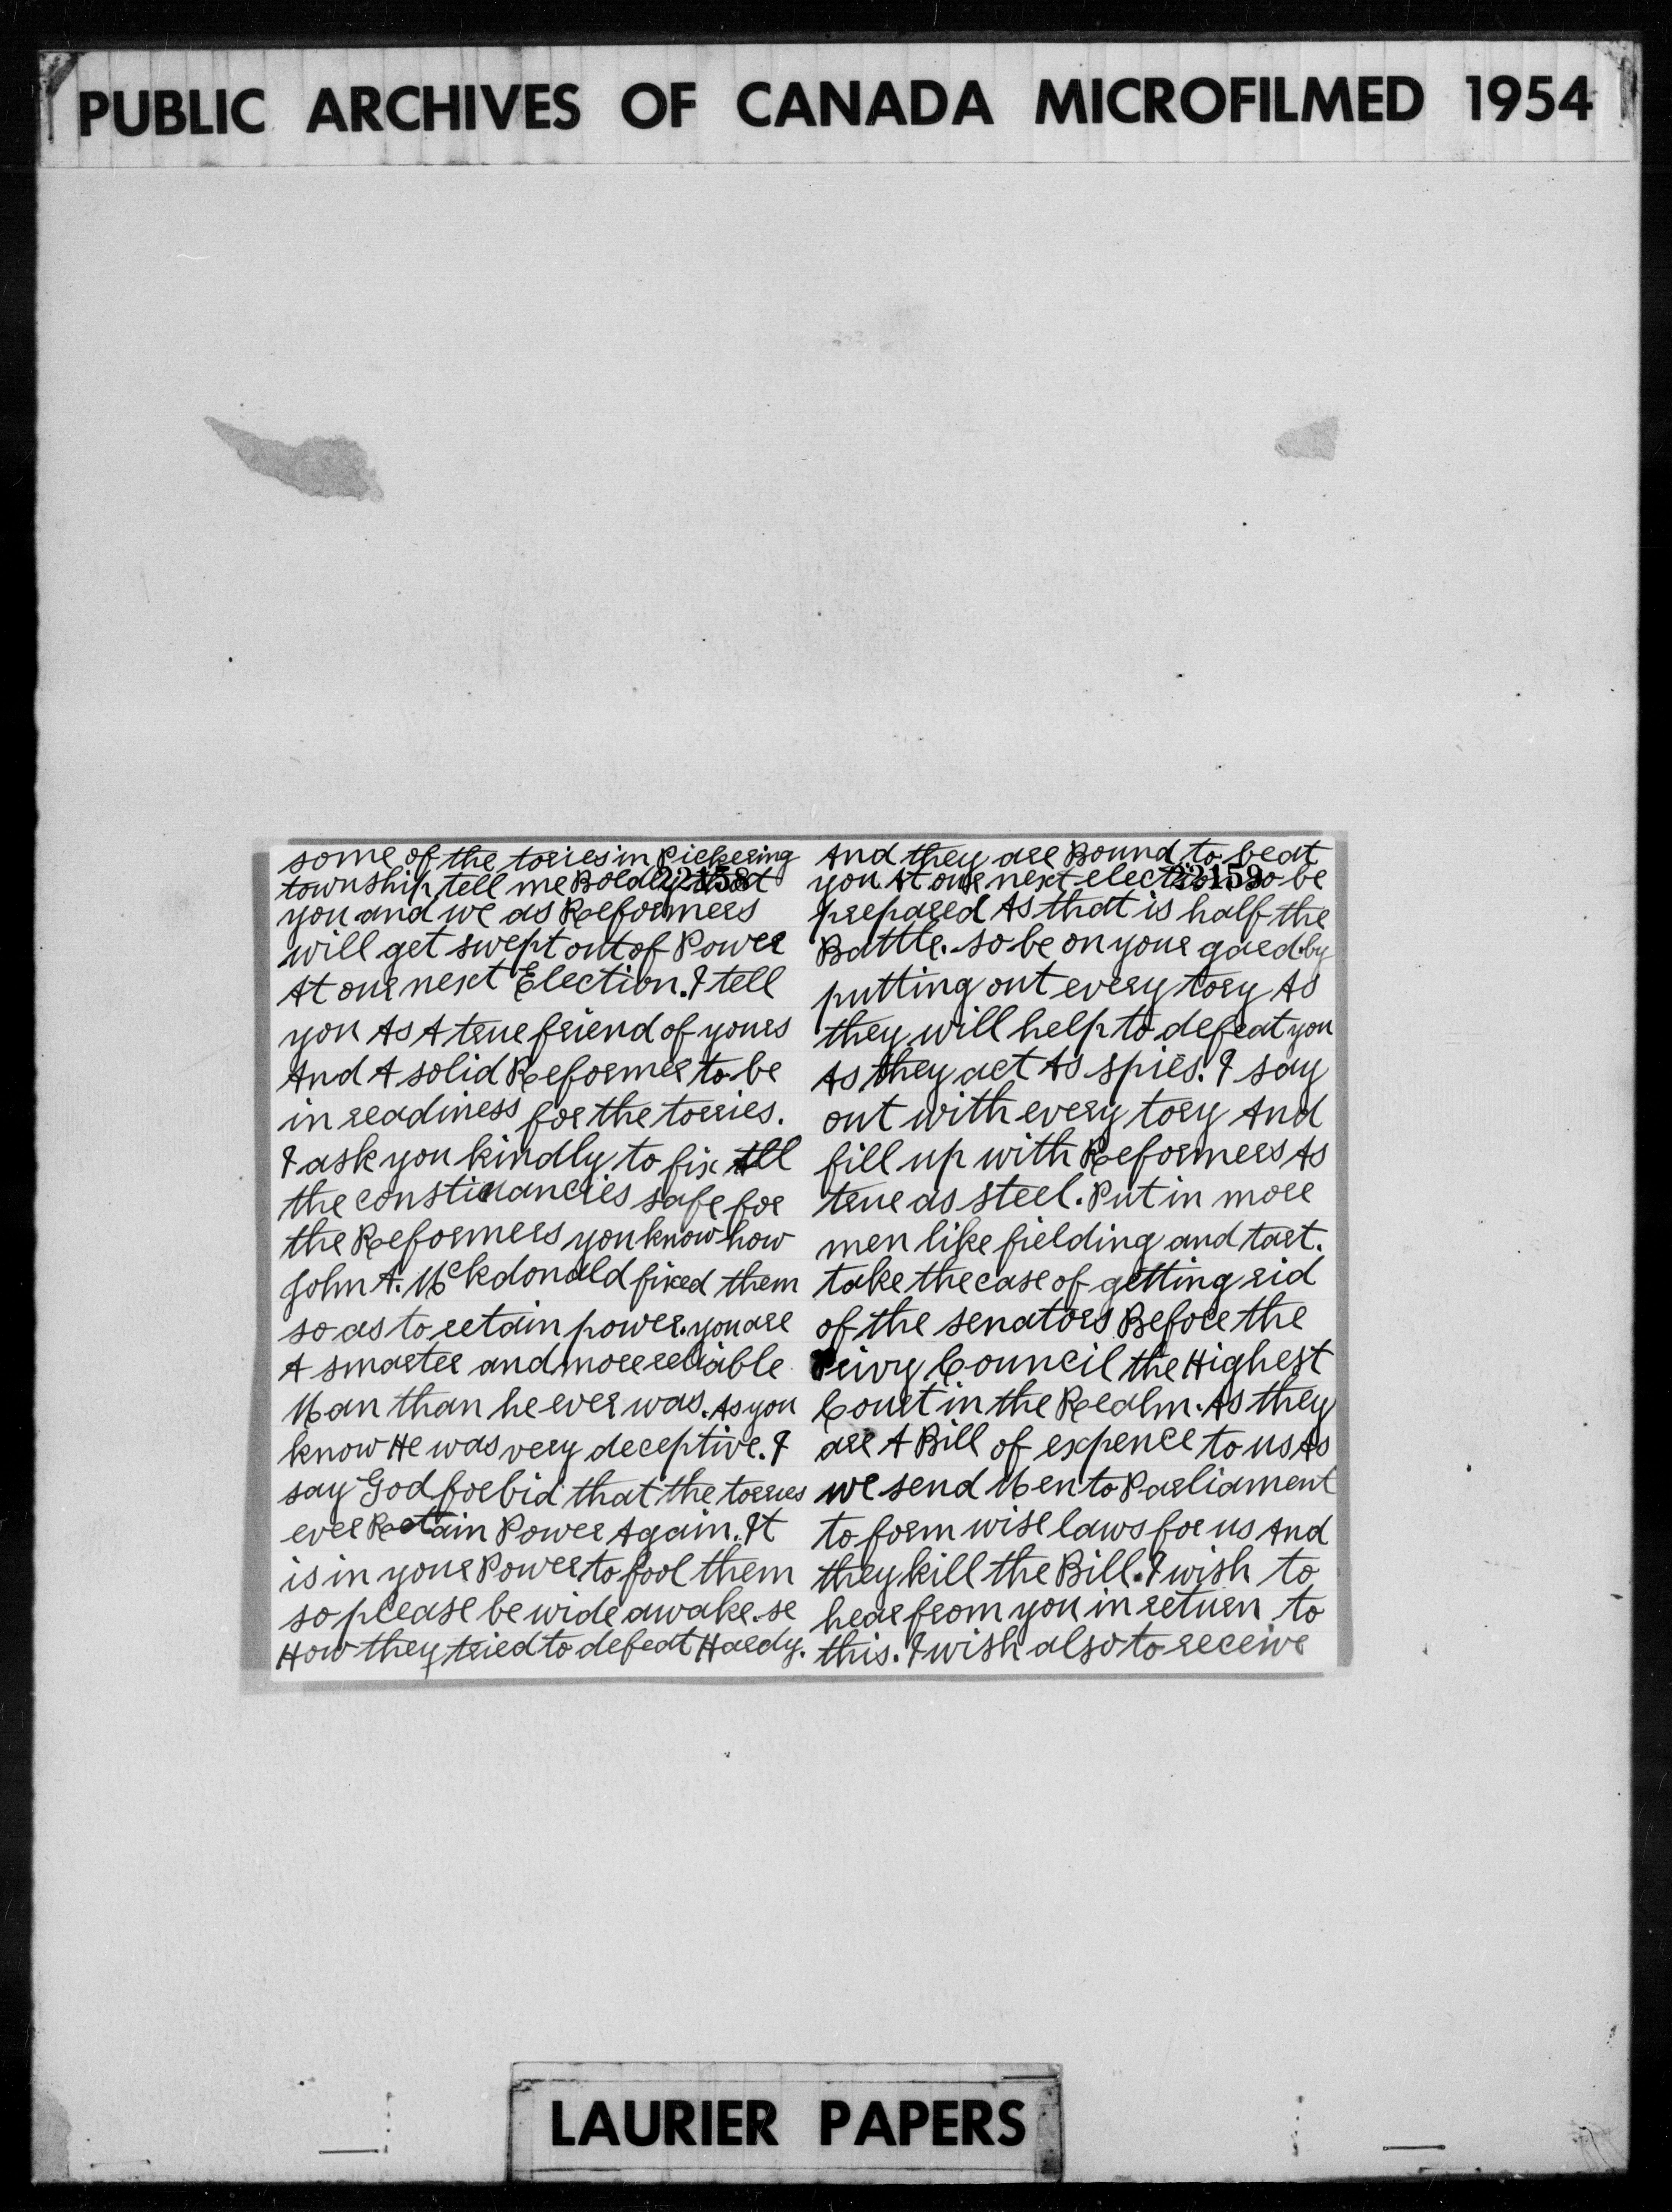 PUBLIC ARCHIVES OF CANADA MICROFILMED 1954
some of the tories in Pickering
township tell me Boldly that
22158
you and we as Reformers
will get swept out of Power
At our next Election. I tell
you As A true friend of yours
And A solid Reformer to be
in readiness for the torries.
I ask you kindly to fix All
the constituancies safe for
the Reformers you know how
John A. Mckdonald fixed them
so as to retain power. you are
A smarter and more reliable
Man than he ever was. As you
know He was very deceptive. I
say God forbid that the torries
ever Reatain Power Again. It
is in your Power to fool them
so please be wide awake. se
How they tried to defeat Hardy.
And they are Bound to beat
you At our next election so be
22159
prepared As that is half the
Battle. so be on your gaed by
putting out every tory As
they will help to defeat you
As they act As spies. I say
out with every tory And
fill up with Reformers As
true as steel. Put in more
men like fielding and tart.
take the case of getting rid
of the senators Before the
Privy Council the Highest
Court in the Realm. As they
are A Bill of expence to us As
we send Men to Parliament
to form wise laws for us And
they kill the Bill. I wish to
hear from you in return to
this. I wish also to receive
LAURIER PAPERS